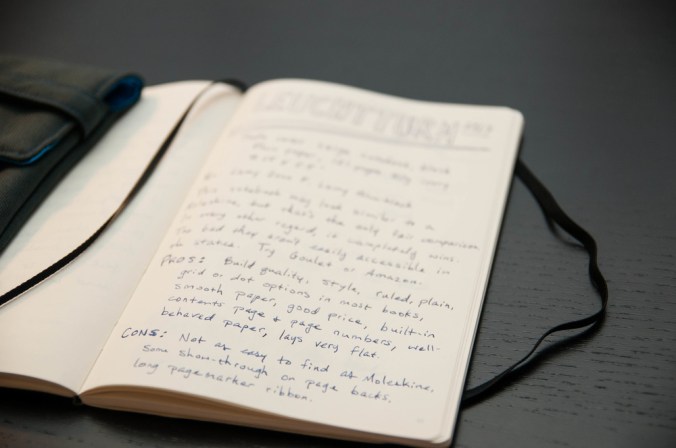 LEUCHTTURM 1917
Large
plain paper, pages, ivory
Lamy
This notebook may look similar to a
Moleskine, but that's the only fair comparison.
In every other regard, it completely wins.
Too bad they aren't easily accessible in
the states. Try Goulet or Amazon.
PROS: Build quality, style, ruled, plain,
grid or dot options in most books,
smooth paper, good price, built-in
contents page & page numbers, well-
behaved paper, lays very flat.
CONS: Not as easy to find as Moleskine,
some show-through on page backs,
long pagemarker ribbon.